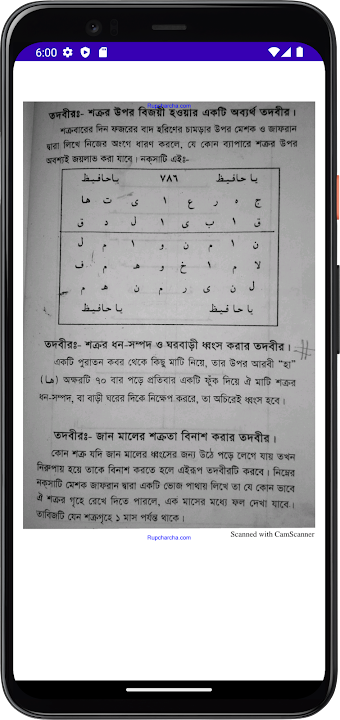 6:00
Rupcharcha.com
তদবীরঃ- শত্রুর উপর বিজয়ী হওয়ার একটি অব্যর্থ তদবীর।
শুক্রবারের দিন ফজরের বাদ হরিণের চামড়ার উপর মেশক ও জাফরান
দ্বারা লিখে নিজের অংগে ধারণ করলে, যে কোন ব্যাপারে শত্রুর উপর
অবশ্যই জয়লাভ করা যাবে। নক্সাটি এইঃ-
یا حافیظ ۷۸۶ یا حافیظ
ج ه ر ع ا ی ت ها
ق ا ب ی ا ل د ق
ن ا م ن و ا م ل
لا م ا خ و ه م ف
ل ن ی ر م ن ه م
یا حافیظ یا حافیظ
তদবীরঃ- শত্রুর ধন-সম্পদ ও ঘরবাড়ী ধ্বংস করার তদবীর।
একটি পুরাতন কবর থেকে কিছু মাটি নিয়ে, তার উপর আরবী “হা”
(ها) অক্ষরটি ৭০ বার পড়ে প্রতিবার একটি ফুঁক দিয়ে ঐ মাটি শত্রুর
ধন-সম্পদ, বা বাড়ী ঘরের দিকে নিক্ষেপ করবে, তা অচিরেই ধ্বংস হবে।
তদবীরঃ- জান মালের শত্রুতা বিনাশ করার তদবীর।
কোন শত্রু যদি জান মালের ধ্বংসের জন্য উঠে পড়ে লেগে যায় তখন
নিরুপায় হয়ে তাকে বিনাশ করতে হলে এইরূপ তদবীরটি করবে। নিম্নের
নক্সাটি মেশক জাফরান দ্বারা একটি ভোজ পাথায় লিখে তা যে কোন ভাবে
ঐ শত্রুর গৃহে রেখে দিতে পারলে, এক মাসের মধ্যে ফল দেখা যাবে।
তাবিজটি যেন শত্রুগৃহে ১ মাস পর্যন্ত থাকে।
Scanned with CamScanner
Rupcharcha.com